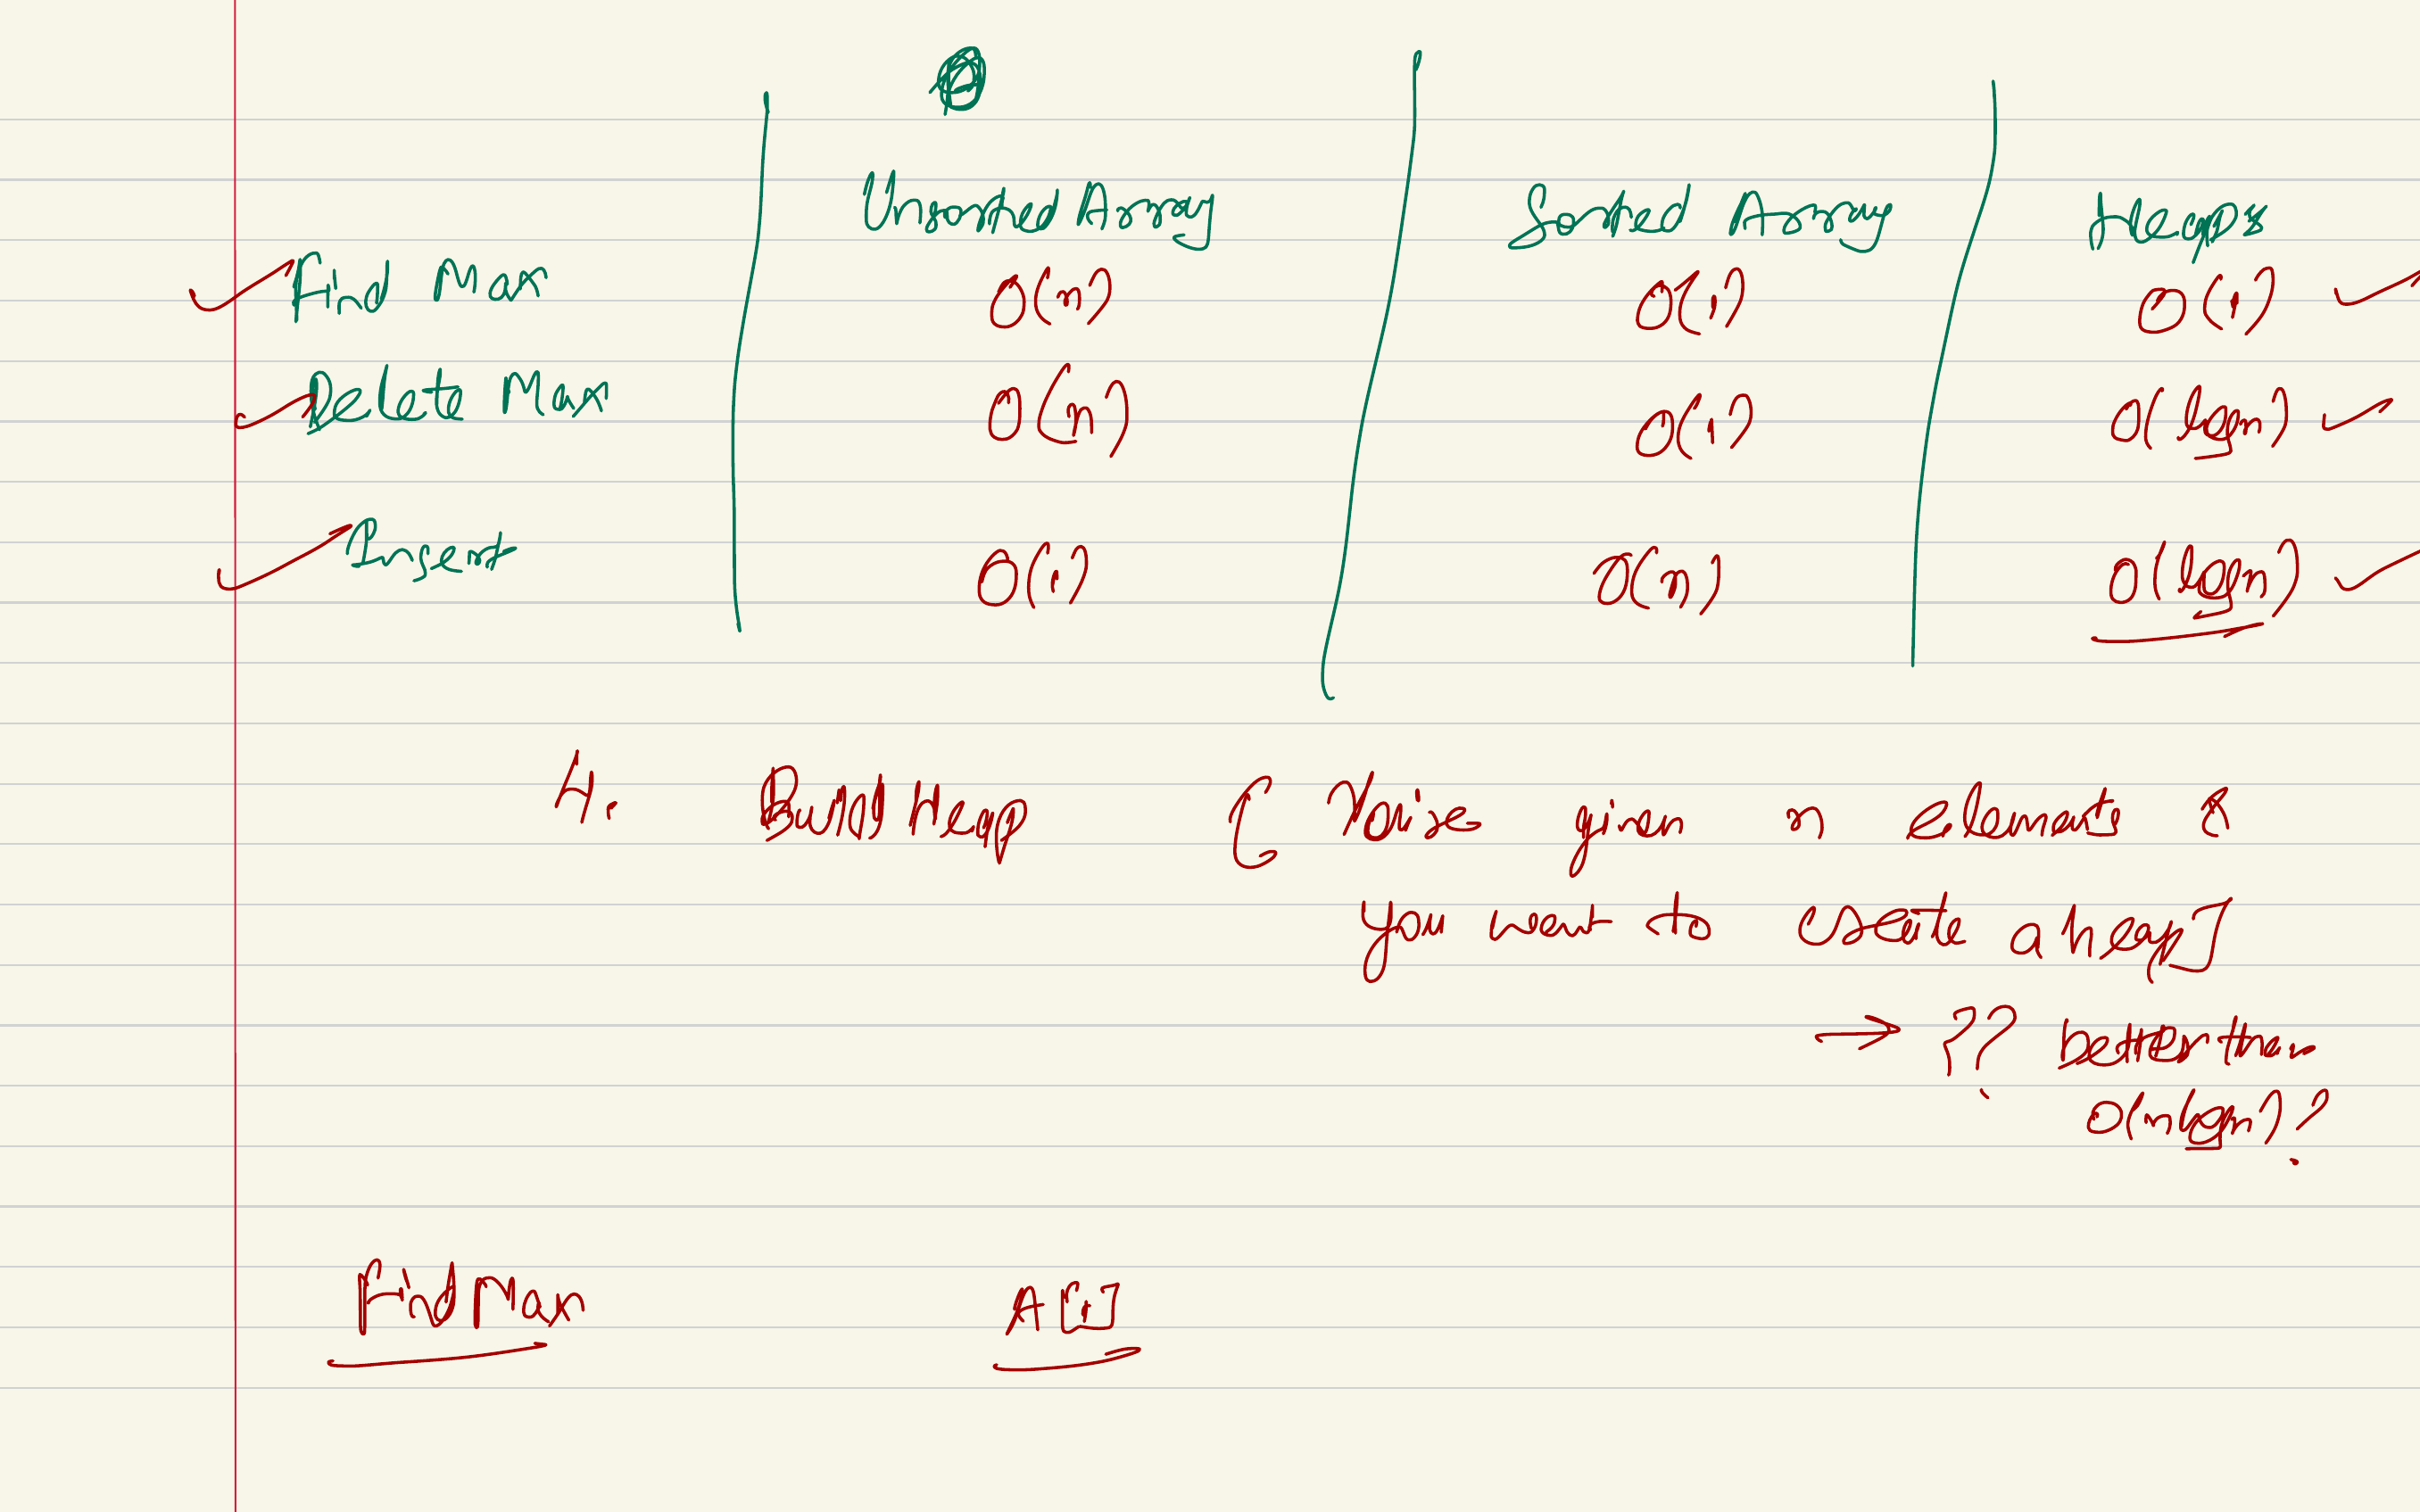 Unsorted Array Sorted Array Heaps
Find Max O(n) O(1) O(1)
Delete Max O(n) O(1) O(logn)
Insert O(1) O(n) O(logn)
4. Build Heap [ You're given n elements &
you want to create a heap]
→ ?? better than
O(nlogn)?
Find Max A[1]